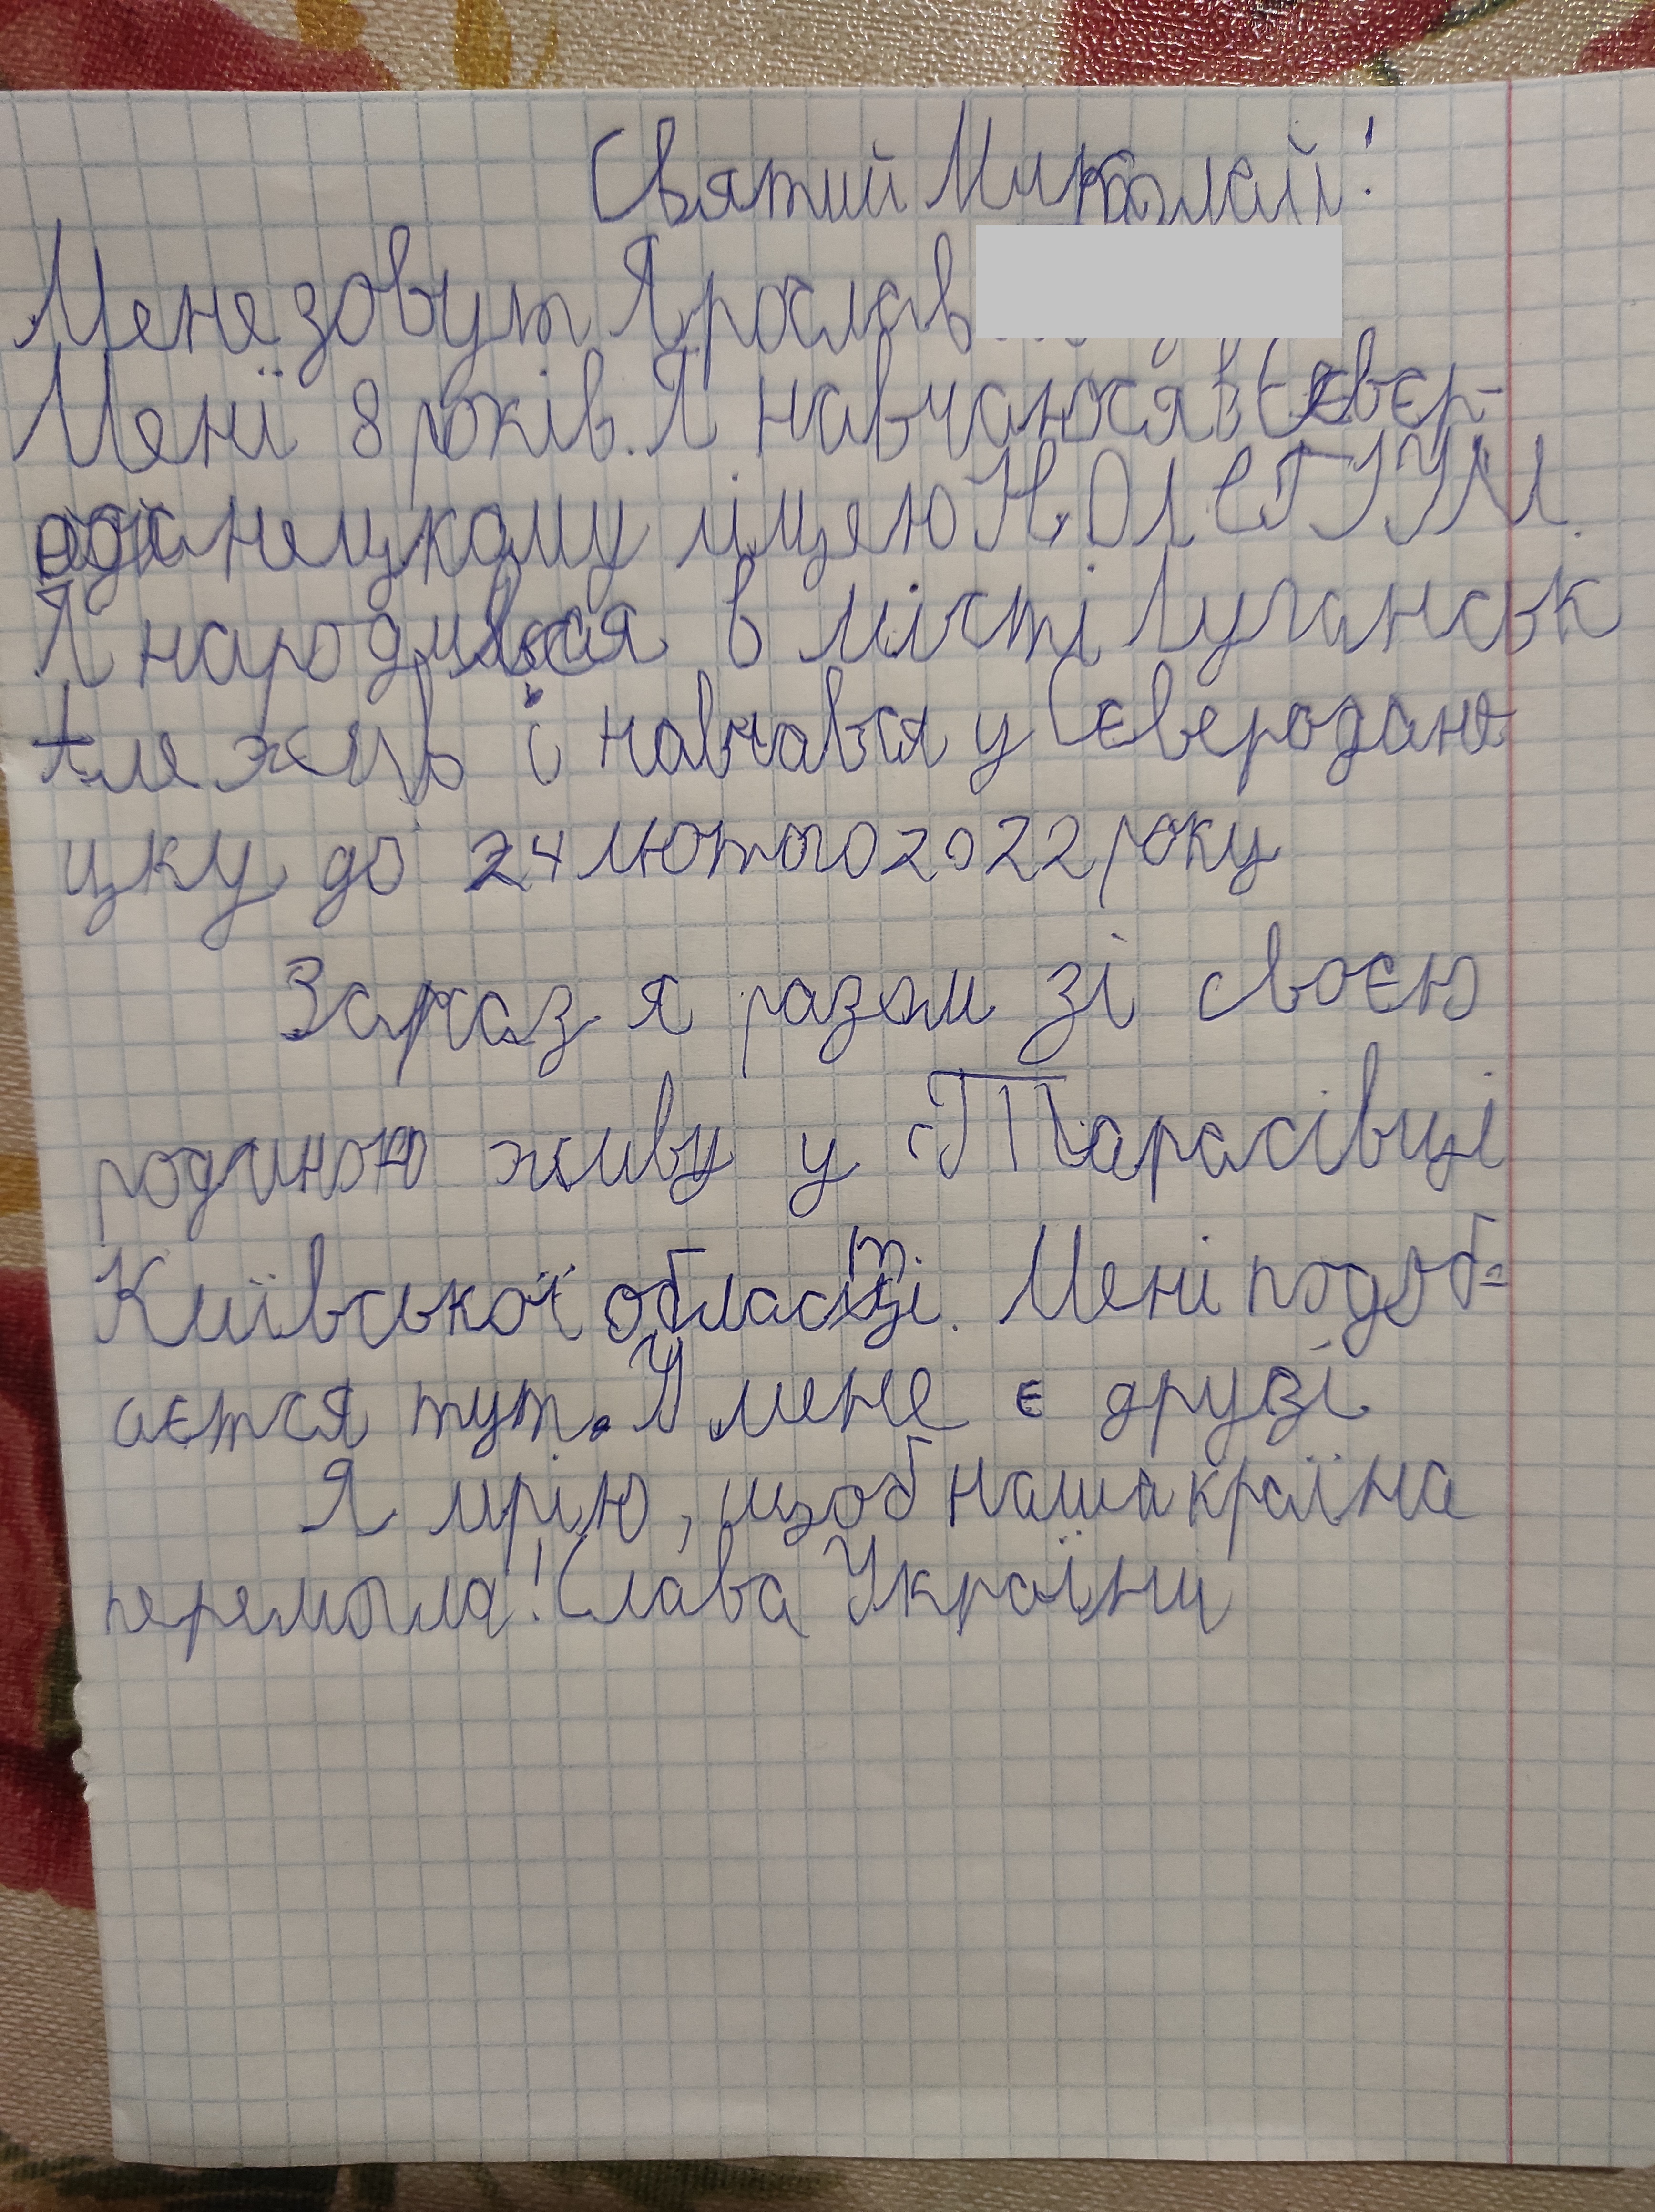 Святий Миколай!
Мене зовут Ярослав
Мені 8 років. Я навчаюся в Сєвєр-
одонецкому ліцею
Я народився в місті Луганськ
але жив і навчався у Сєверодоне
цку до 24 лютого 2022 року
Зараз я разом зі своєю
родиною живу у с. Тарасівці
Київської області. Мені подоб-
аєтся тут. У мене є друзі
Я мрію, щоб наша країна
перемогла! Слава Україні